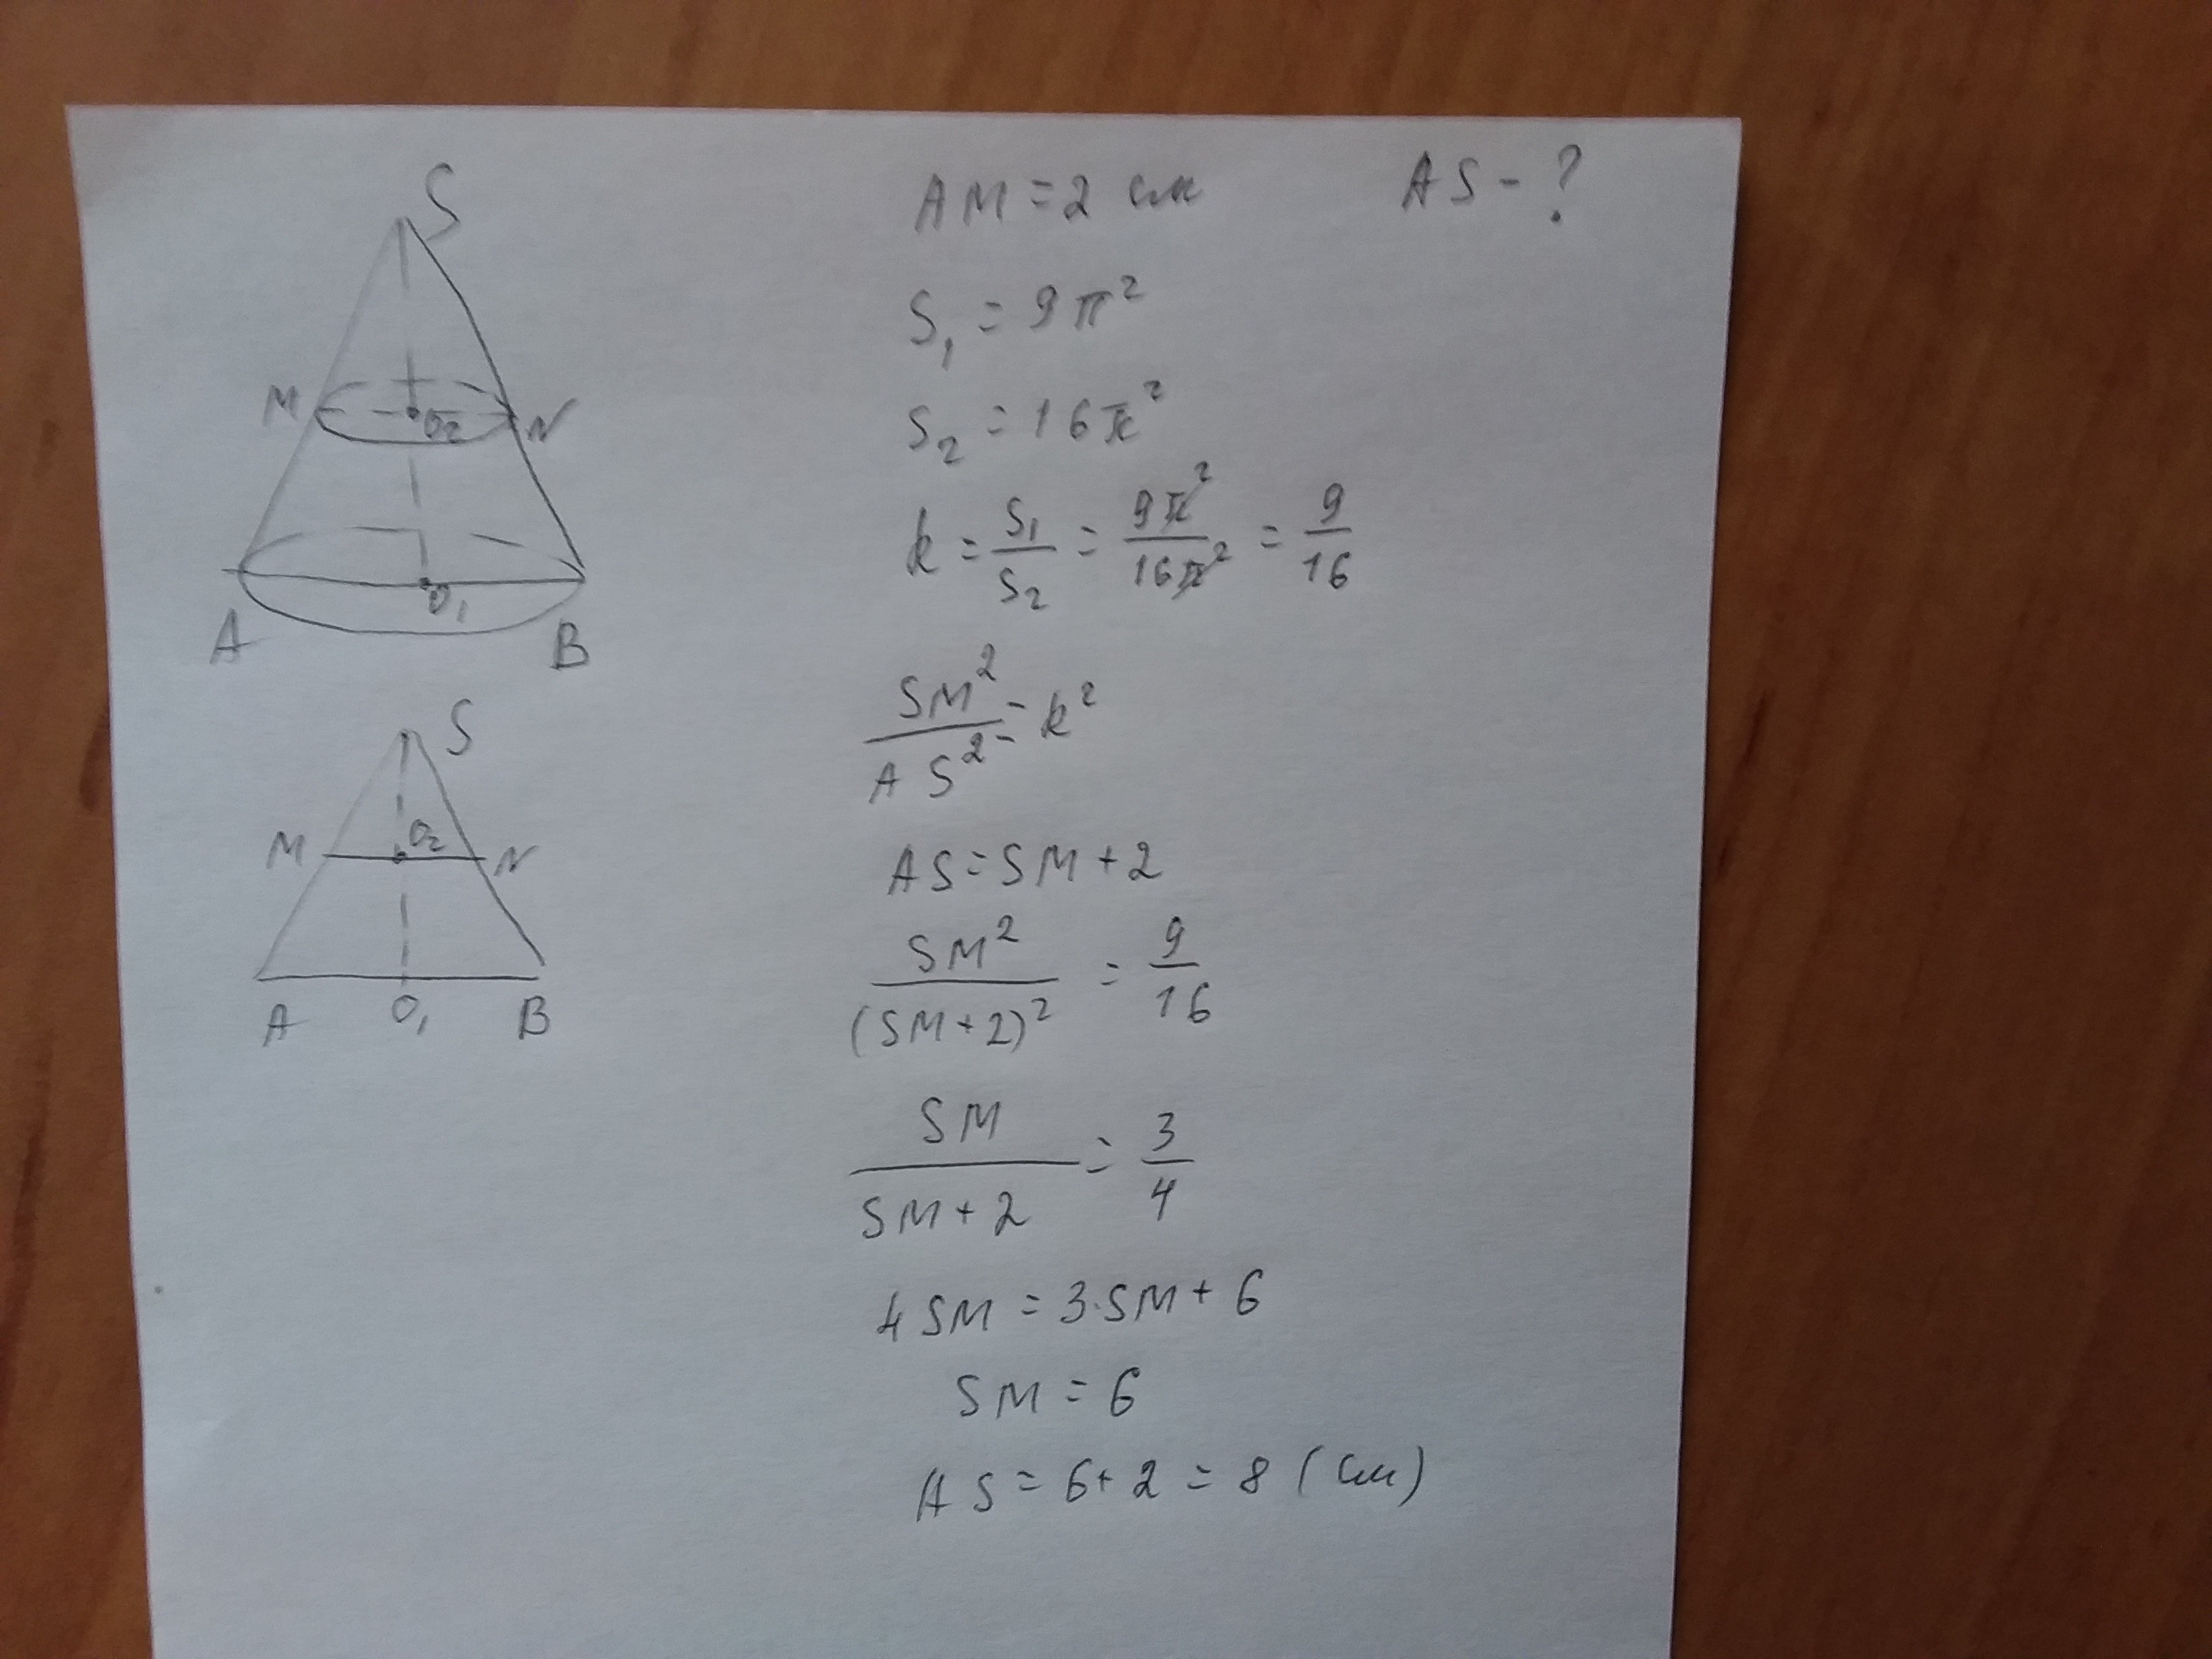 S
M O₂ N
A O₁ B
S
M O₂ N
A O₁ B
AM = 2 см AS - ?
S₁ = 9π²
S₂ = 16π²
k = S₁/S₂ = 9π²/16π² = 9/16
SM²/AS² = k²
AS = SM + 2
SM²/(SM+2)² = 9/16
SM/SM+2 = 3/4
4SM = 3·SM + 6
SM = 6
AS = 6+2 = 8 (см)